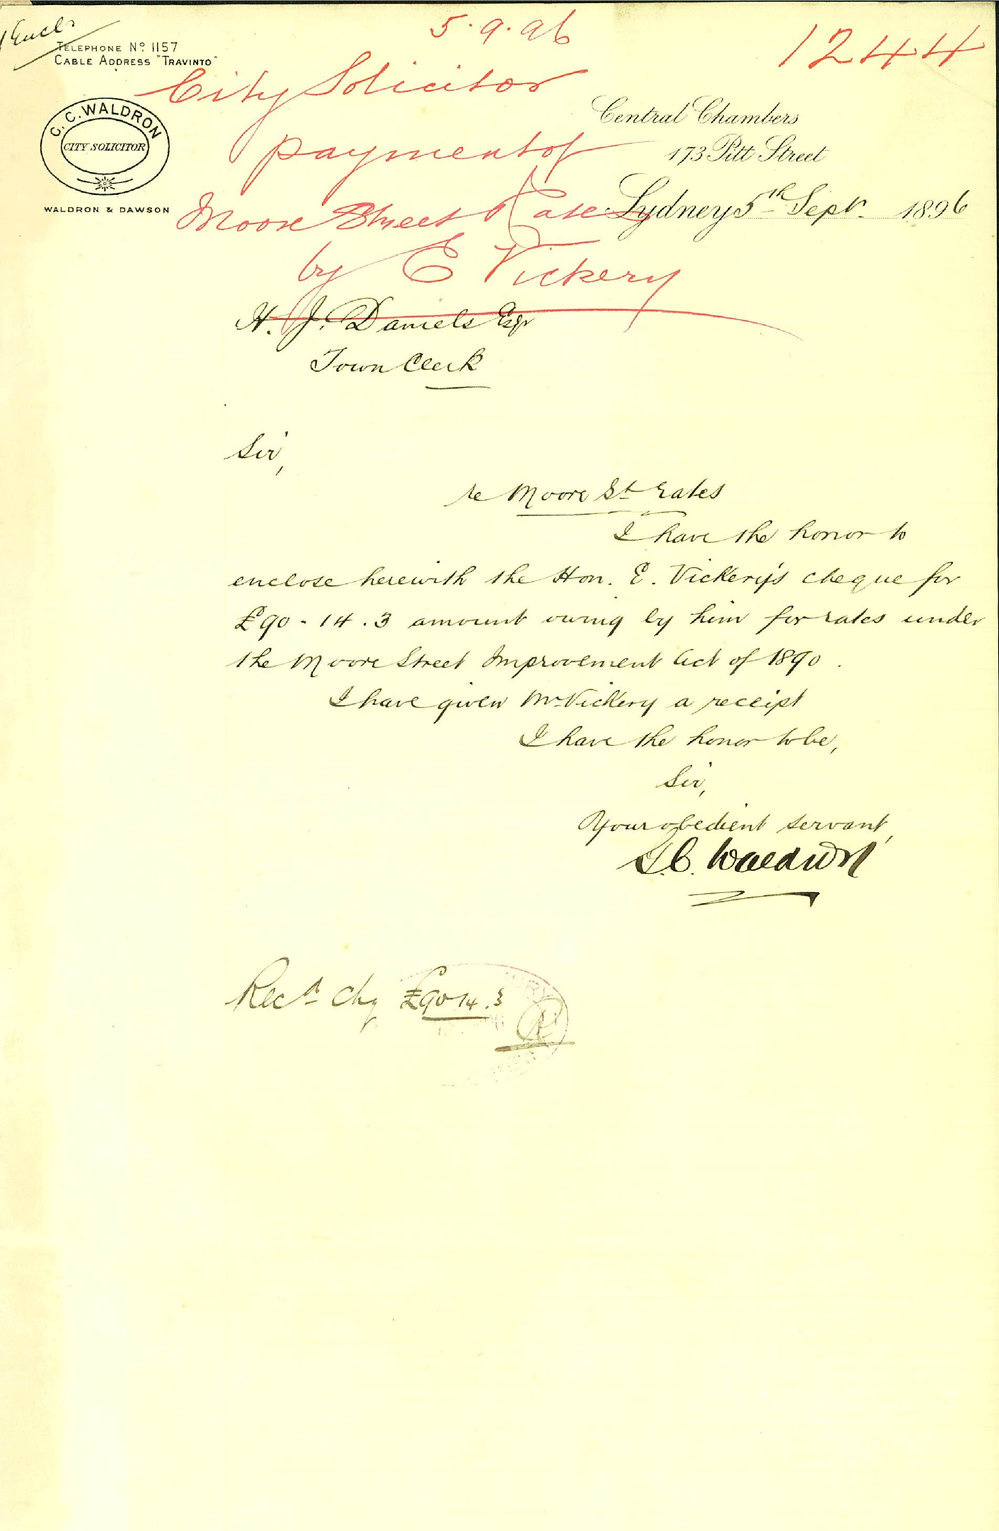 1 Encl.
5.9.96
1244
TELEPHONE Nº 1157
CABLE ADDRESS "TRAVINTO"
City Solicitor
payment of
Moore Street Rates
by E Vickery
G. C. WALDRON
CITY SOLICITOR
WALDRON & DAWSON
Central Chambers
173 Pitt Street
Sydney 5th Septr. 1896
H. J. Daniels Esqr
Town Clerk
Sir,
re Moore St rates
I have the honor to
enclose herewith the Hon. E. Vickery's cheque for
£90-14.3 amount owing by him for rates under
the Moore Street Improvement Act of 1890.
I have given Mr Vickery a receipt
I have the honor to be,
Sir,
Your obedient servant,
G. C. Waldron
Recd Chq £90 14.3